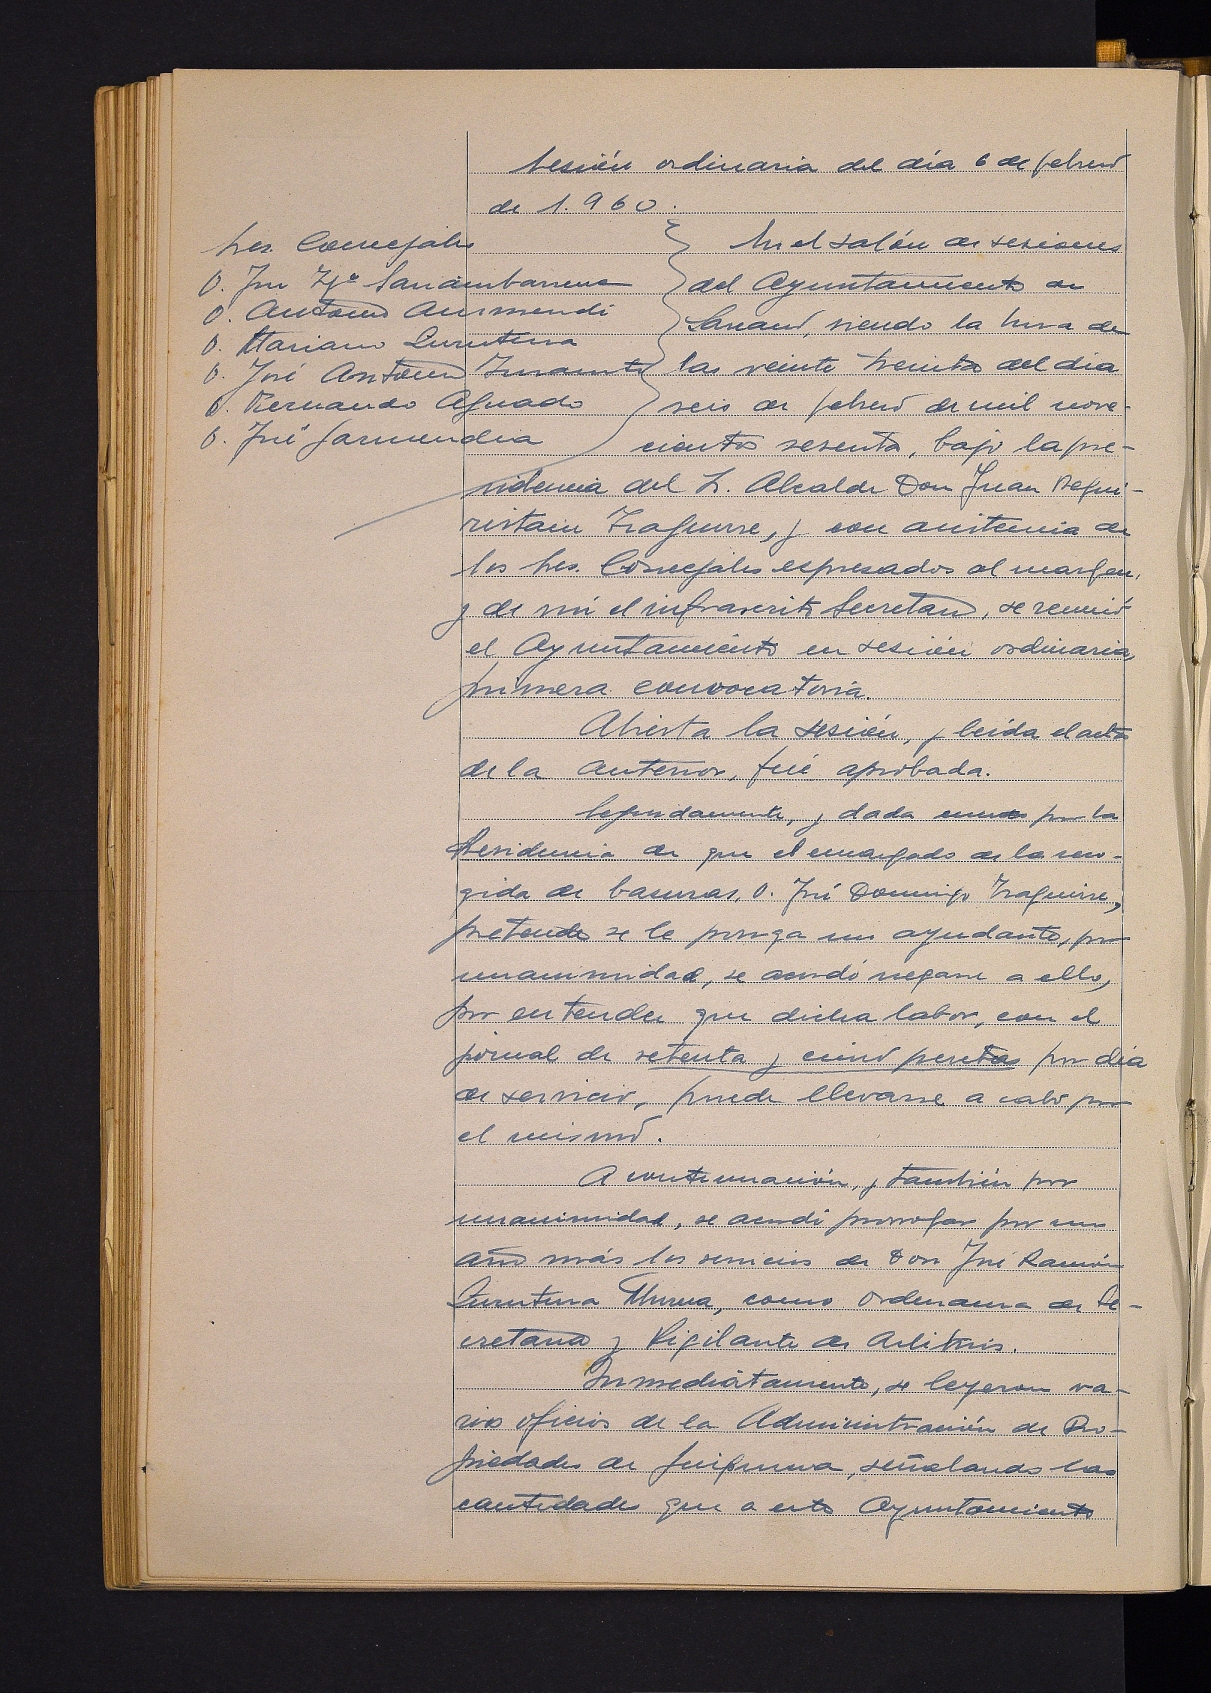 Sesión ordinaria del día 6 de febrero
de 1.960.
Sres. Concejales
D. José Mª Sarasambarrena
D. Antonio Aurmendi
D. Mariano Lurutena
D. José Antonio
D. Fernando Aguado
D. José Garmendia
En el salón de sesiones
del Ayuntamiento de
siendo la hora de
las veinte treinta del día
seis de febrero de mil nove-
cientos sesenta, bajo la pre-
sidencia del Sr. Alcalde Don Juan Begui-
ristain Izaguirre, y con asistencia de
los Sres. Concejales espresados al margen,
y de mi el infrascrito Secretario, se reunió
el Ayuntamiento en sesión ordinaria,
primera convocatoria.
Abierta la sesión, y leída el acta
de la anterior, fué aprobada.
Seguidamente, y dada cuenta por la
Presidencia de que el encargado de la reco-
gida de basuras, D. José Domingo Izaguirre,
pretende se le ponga un ayudante, por
unanimidad, se acordó negarse a ello,
por entender que dicha labor, con el
jornal de setenta y cinco pesetas por día
de servicio, puede llevarse a cabo por
el mismo.
A continuación, y también por
unanimidad, se acordó prorrogar por un
año más los servicios de Don José Ramón
Lurutena Murua, como Ordenanza de Se-
cretaria y Vigilante de Arbitrios.
Inmediatamente, se leyeron va-
rios oficios de la Administración de Pro-
piedades de Guipuzcoa, señalando las
cantidades que a este Ayuntamiento